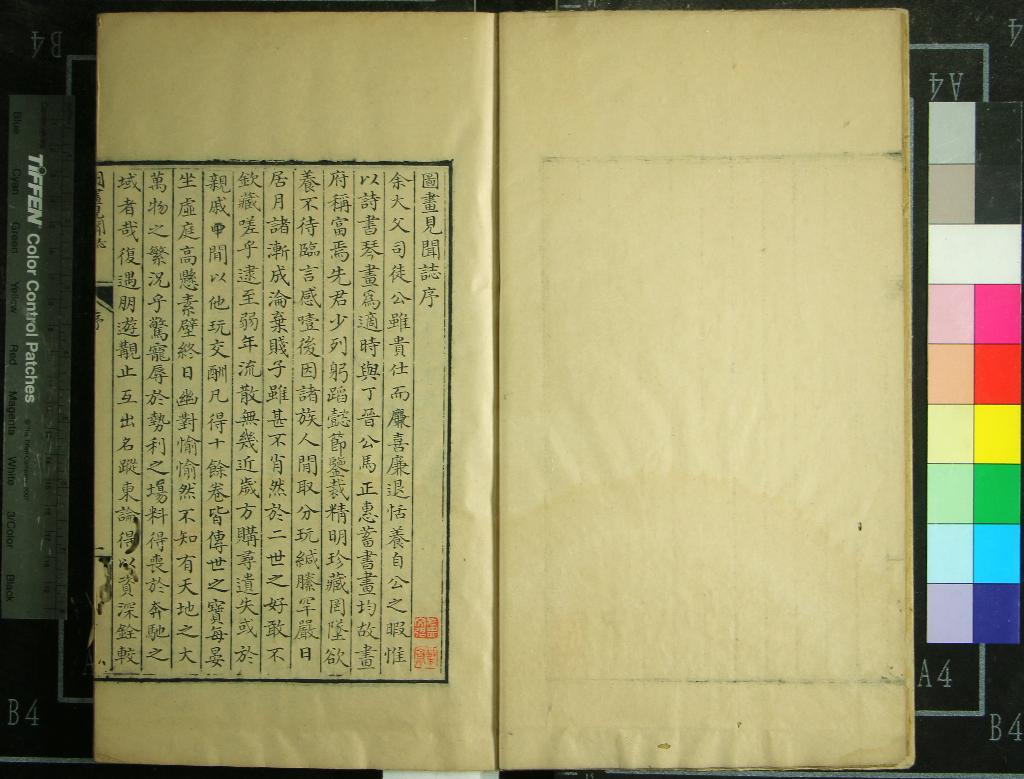 圖畫見聞誌序
余大父司徒公雖貴仕而廉喜廉退恬養自公之暇惟
以詩書琴畫爲適時與丁晉公馬正惠蓄書畫均故畫
府稱富焉先君少列躬蹈懿節鑒裁精明珍藏罔墜欲
養不待臨言感噎後因諸族人間取分玩緘縢罕嚴日
居月諸漸成淪棄賤子雖甚不肖然於二世之好敢不
欽藏嗟乎逮至弱年流散無幾近歲方購尋遺失或於
親戚間以他玩交酬凡得十餘卷皆傳世之寶每宴
坐虛庭高懸素壁終日幽對愉愉然不知有天地之大
萬物之繁況乎驚寵辱於勢利之場料得喪於奔馳之
域者哉復遇朋遊觀止互出名蹤柬論得以資深銓較
TIFFEN Color Control Patches
Blue Cyan Green Yellow Red Magenta White 3/Color Black
B4
A4
B4
A4
B4